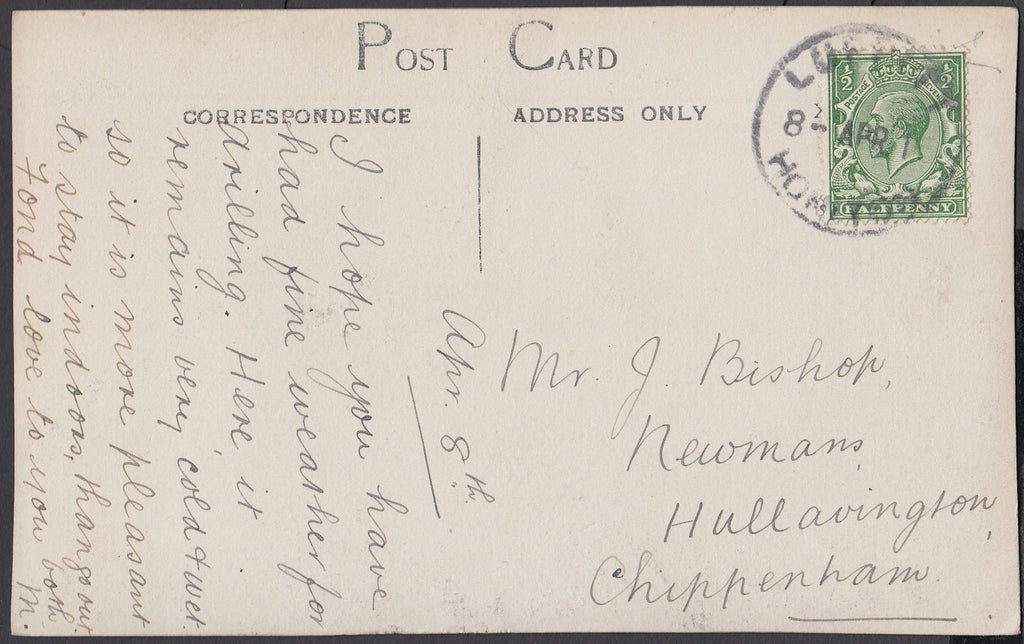 POST CARD
CORRESPONDENCE
ADDRESS ONLY
8 APR
HONITON
½ ½
POSTAGE REVENUE
HALFPENNY
Apr. 8th
I hope you have
had fine weather for
drilling. Here it
remains very cold & wet
so it is more pleasant
to stay indoors, than go out.
Fond love to you both
M.
Mr. J. Bishop,
Newmans,
Hullavington,
Chippenham.